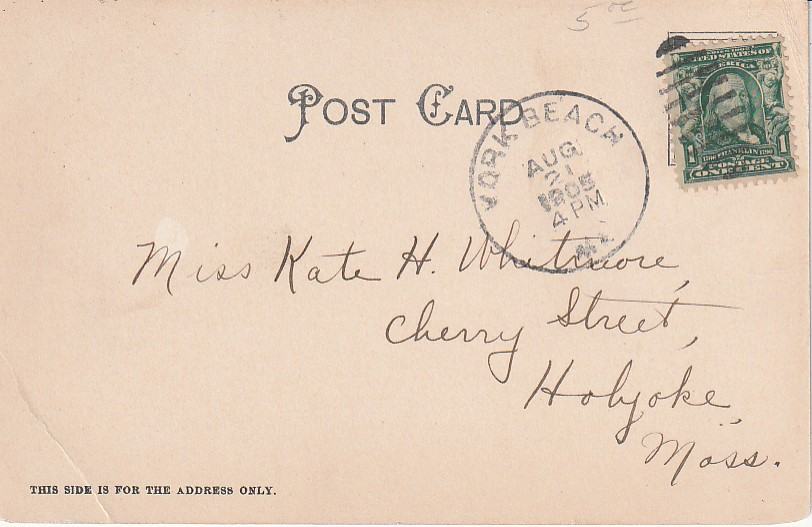 5oc
POST CARD
YORK BEACH
AUG
21
1905
4 PM
ME.
UNITED STATES OF
AMERICA
1 1706 FRANKLIN 1790 1
POSTAGE
ONE CENT
Miss Kate H. Whitmore,
Cherry Street,
Holyoke,
Mass.
THIS SIDE IS FOR THE ADDRESS ONLY.